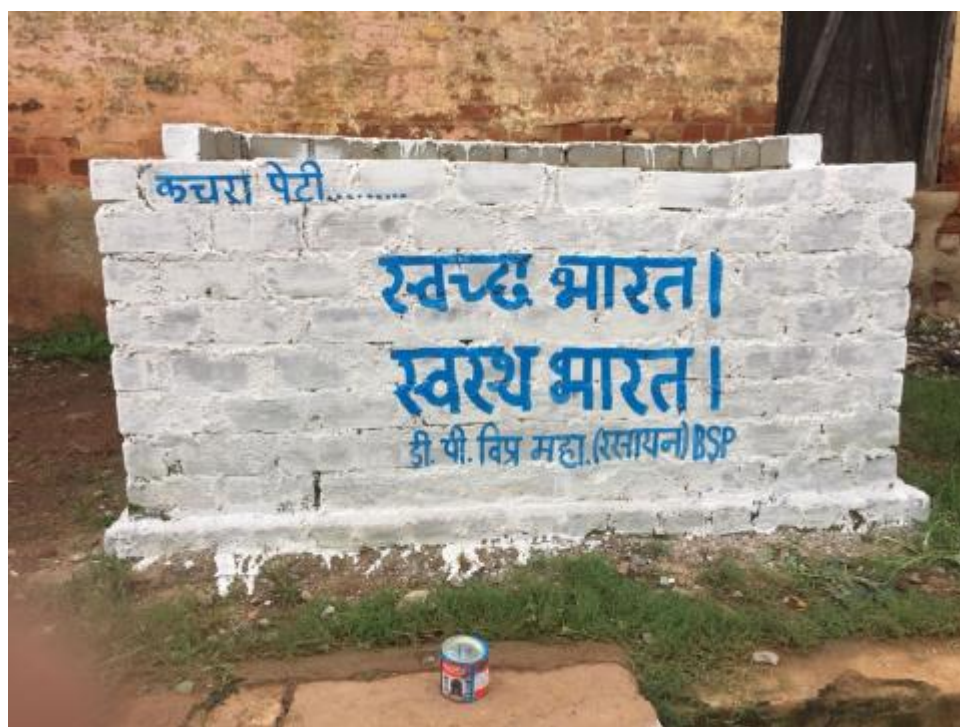 कचरा पेटी.........
स्वच्छ भारत।
स्वस्थ भारत।
डी. पी. विप्र महा.(रसायन) BSP